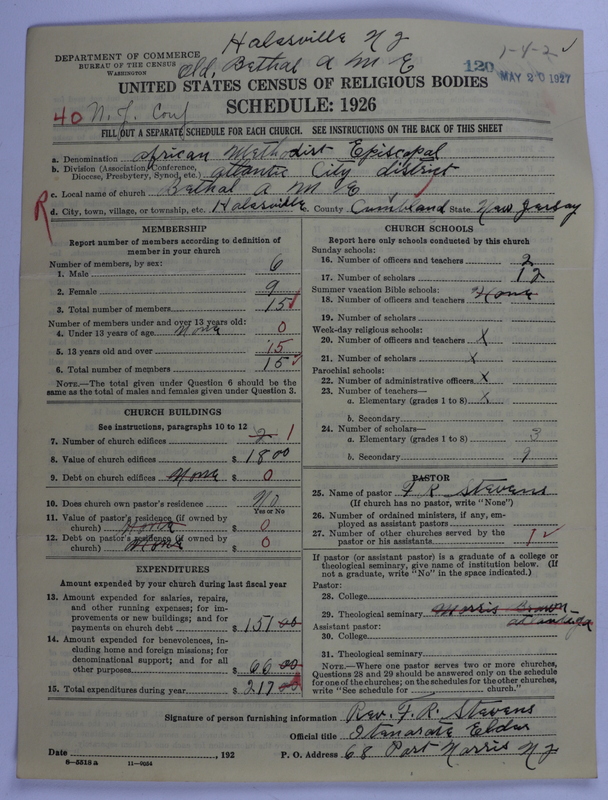 Halasville N J
DEPARTMENT OF COMMERCE
BUREAU OF THE CENSUS
WASHINGTON
Old, Bethal A M E
120
1-4-2 ✓
MAY 20 1927
UNITED STATES CENSUS OF RELIGIOUS BODIES
SCHEDULE: 1926
40 N. J. Conf
FILL OUT A SEPARATE SCHEDULE FOR EACH CHURCH. SEE INSTRUCTIONS ON THE BACK OF THIS SHEET
a. Denomination African Methodist Episcopal
b. Division (Association, Conference, Diocese, Presbytery, Synod, etc.) Atlantic City district
c. Local name of church Bethal A M E
R
d. City, town, village, or township, etc. Halasville e. County Cumbland State New Jersay
MEMBERSHIP
Report number of members according to definition of
member in your church
Number of members, by sex:
1. Male 6
2. Female 9
3. Total number of members 15 ✓
Number of members under and over 13 years old:
4. Under 13 years of age None 0
5. 13 years old and over 15
6. Total number of members 15 ✓
NOTE.—The total given under Question 6 should be the
same as the total of males and females given under Question 3.
CHURCH BUILDINGS
See instructions, paragraphs 10 to 12
7. Number of church edifices 2 1
8. Value of church edifices $ 1800
9. Debt on church edifices None $ 0
10. Does church own pastor's residence? No
Yes or No
11. Value of pastor's residence (if owned by
church) None $ 0
12. Debt on pastor's residence (if owned by
church) None $ 0
EXPENDITURES
Amount expended by your church during last fiscal year
13. Amount expended for salaries, repairs,
and other running expenses; for im-
provements or new buildings; and for
payments on church debt $ 151 00
14. Amount expended for benevolences, in-
cluding home and foreign missions; for
denominational support; and for all
other purposes $ 66 00
15. Total expenditures during year $ 217 00
CHURCH SCHOOLS
Report here only schools conducted by this church
Sunday schools:
16. Number of officers and teachers 2
17. Number of scholars 12
Summer vacation Bible schools:
18. Number of officers and teachers None
19. Number of scholars
Week-day religious schools:
20. Number of officers and teachers X
21. Number of scholars X
Parochial schools:
22. Number of administrative officers X
23. Number of teachers—
a. Elementary (grades 1 to 8) X
b. Secondary
24. Number of scholars—
a. Elementary (grades 1 to 8) 3
b. Secondary 9
PASTOR
25. Name of pastor F R Stevens
(If church has no pastor, write "None")
26. Number of ordained ministers, if any, em-
ployed as assistant pastors
27. Number of other churches served by the
pastor or his assistants 1 ✓
If pastor (or assistant pastor) is a graduate of a college or
theological seminary, give name of institution below. (If
not a graduate, write "No" in the space indicated.)
Pastor:
28. College
29. Theological seminary Morris Brown
Assistant pastor:
30. College
31. Theological seminary
NOTE.—Where one pastor serves two or more churches,
Questions 28 and 29 should be answered only on the schedule
for one of the churches; on the schedules for the other churches,
write "See schedule for church."
Signature of person furnishing information Rev. F. R. Stevens
Official title Itenarate Elder
Date , 192
P. O. Address 68 Port Norris N J
8—5518 a 11—9054